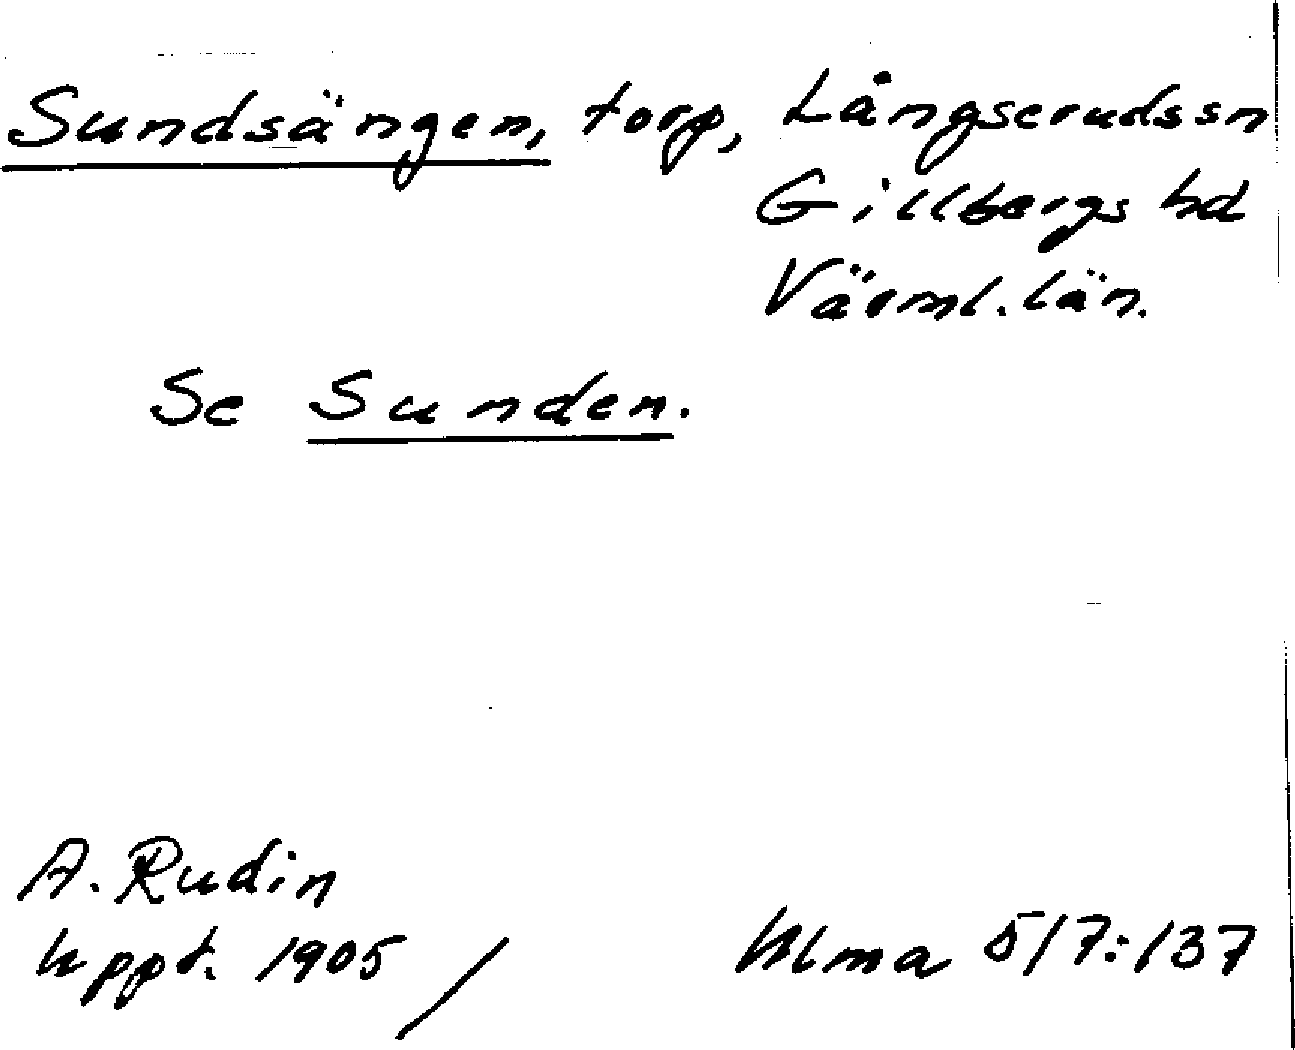 Sundsängen, torp, Långserudssn
Gillbergs hd
Värml. län.
Se Sunden.
A. Rudin
uppt. 1905 /
Ulma 517:137